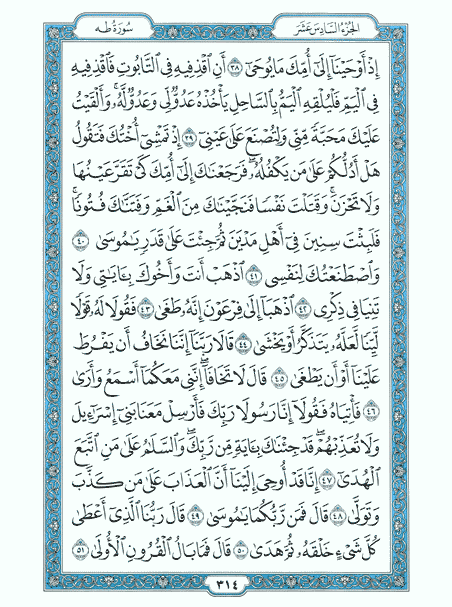 سُورَةُ طه
الجُزْءُ السَّادِسَ عَشَرَ
إِذْ أَوْحَيْنَآ إِلَىٰٓ أُمِّكَ مَا يُوحَىٰٓ ٣٨ أَنِ ٱقْذِفِيهِ فِى ٱلتَّابُوتِ فَٱقْذِفِيهِ
فِى ٱلْيَمِّ فَلْيُلْقِهِ ٱلْيَمُّ بِٱلسَّاحِلِ يَأْخُذْهُ عَدُوٌّ لِّى وَعَدُوٌّ لَّهُۥ ۚ وَأَلْقَيْتُ
عَلَيْكَ مَحَبَّةً مِّنِّى وَلِتُصْنَعَ عَلَىٰ عَيْنِىٓ ٣٩ إِذْ تَمْشِىٓ أُخْتُكَ فَتَقُولُ
هَلْ أَدُلُّكُمْ عَلَىٰ مَن يَكْفُلُهُۥ ۖ فَرَجَعْنَٰكَ إِلَىٰٓ أُمِّكَ كَىْ تَقَرَّ عَيْنُهَا
وَلَا تَحْزَنَ ۚ وَقَتَلْتَ نَفْسًا فَنَجَّيْنَٰكَ مِنَ ٱلْغَمِّ وَفَتَنَّٰكَ فُتُونًا ۚ
فَلَبِثْتَ سِنِينَ فِىٓ أَهْلِ مَدْيَنَ ثُمَّ جِئْتَ عَلَىٰ قَدَرٍ يَٰمُوسَىٰ ٤٠
وَٱصْطَنَعْتُكَ لِنَفْسِى ٤١ ٱذْهَبْ أَنتَ وَأَخُوكَ بِـَٔايَٰتِى وَلَا
تَنِيَا فِى ذِكْرِى ٤٢ ٱذْهَبَآ إِلَىٰ فِرْعَوْنَ إِنَّهُۥ طَغَىٰ ٤٣ فَقُولَا لَهُۥ قَوْلًا
لَّيِّنًا لَّعَلَّهُۥ يَتَذَكَّرُ أَوْ يَخْشَىٰ ٤٤ قَالَا رَبَّنَآ إِنَّنَا نَخَافُ أَن يَفْرُطَ
عَلَيْنَآ أَوْ أَن يَطْغَىٰ ٤٥ قَالَ لَا تَخَافَآ ۖ إِنَّنِى مَعَكُمَآ أَسْمَعُ وَأَرَىٰ
٤٦ فَأْتِيَاهُ فَقُولَآ إِنَّا رَسُولَا رَبِّكَ فَأَرْسِلْ مَعَنَا بَنِىٓ إِسْرَٰٓءِيلَ
وَلَا تُعَذِّبْهُمْ ۖ قَدْ جِئْنَٰكَ بِـَٔايَةٍ مِّن رَّبِّكَ ۖ وَٱلسَّلَٰمُ عَلَىٰ مَنِ ٱتَّبَعَ
ٱلْهُدَىٰٓ ٤٧ إِنَّا قَدْ أُوحِىَ إِلَيْنَآ أَنَّ ٱلْعَذَابَ عَلَىٰ مَن كَذَّبَ
وَتَوَلَّىٰ ٤٨ قَالَ فَمَن رَّبُّكُمَا يَٰمُوسَىٰ ٤٩ قَالَ رَبُّنَا ٱلَّذِىٓ أَعْطَىٰ
كُلَّ شَىْءٍ خَلْقَهُۥ ثُمَّ هَدَىٰ ٥٠ قَالَ فَمَا بَالُ ٱلْقُرُونِ ٱلْأُولَىٰ ٥١
٣١٤